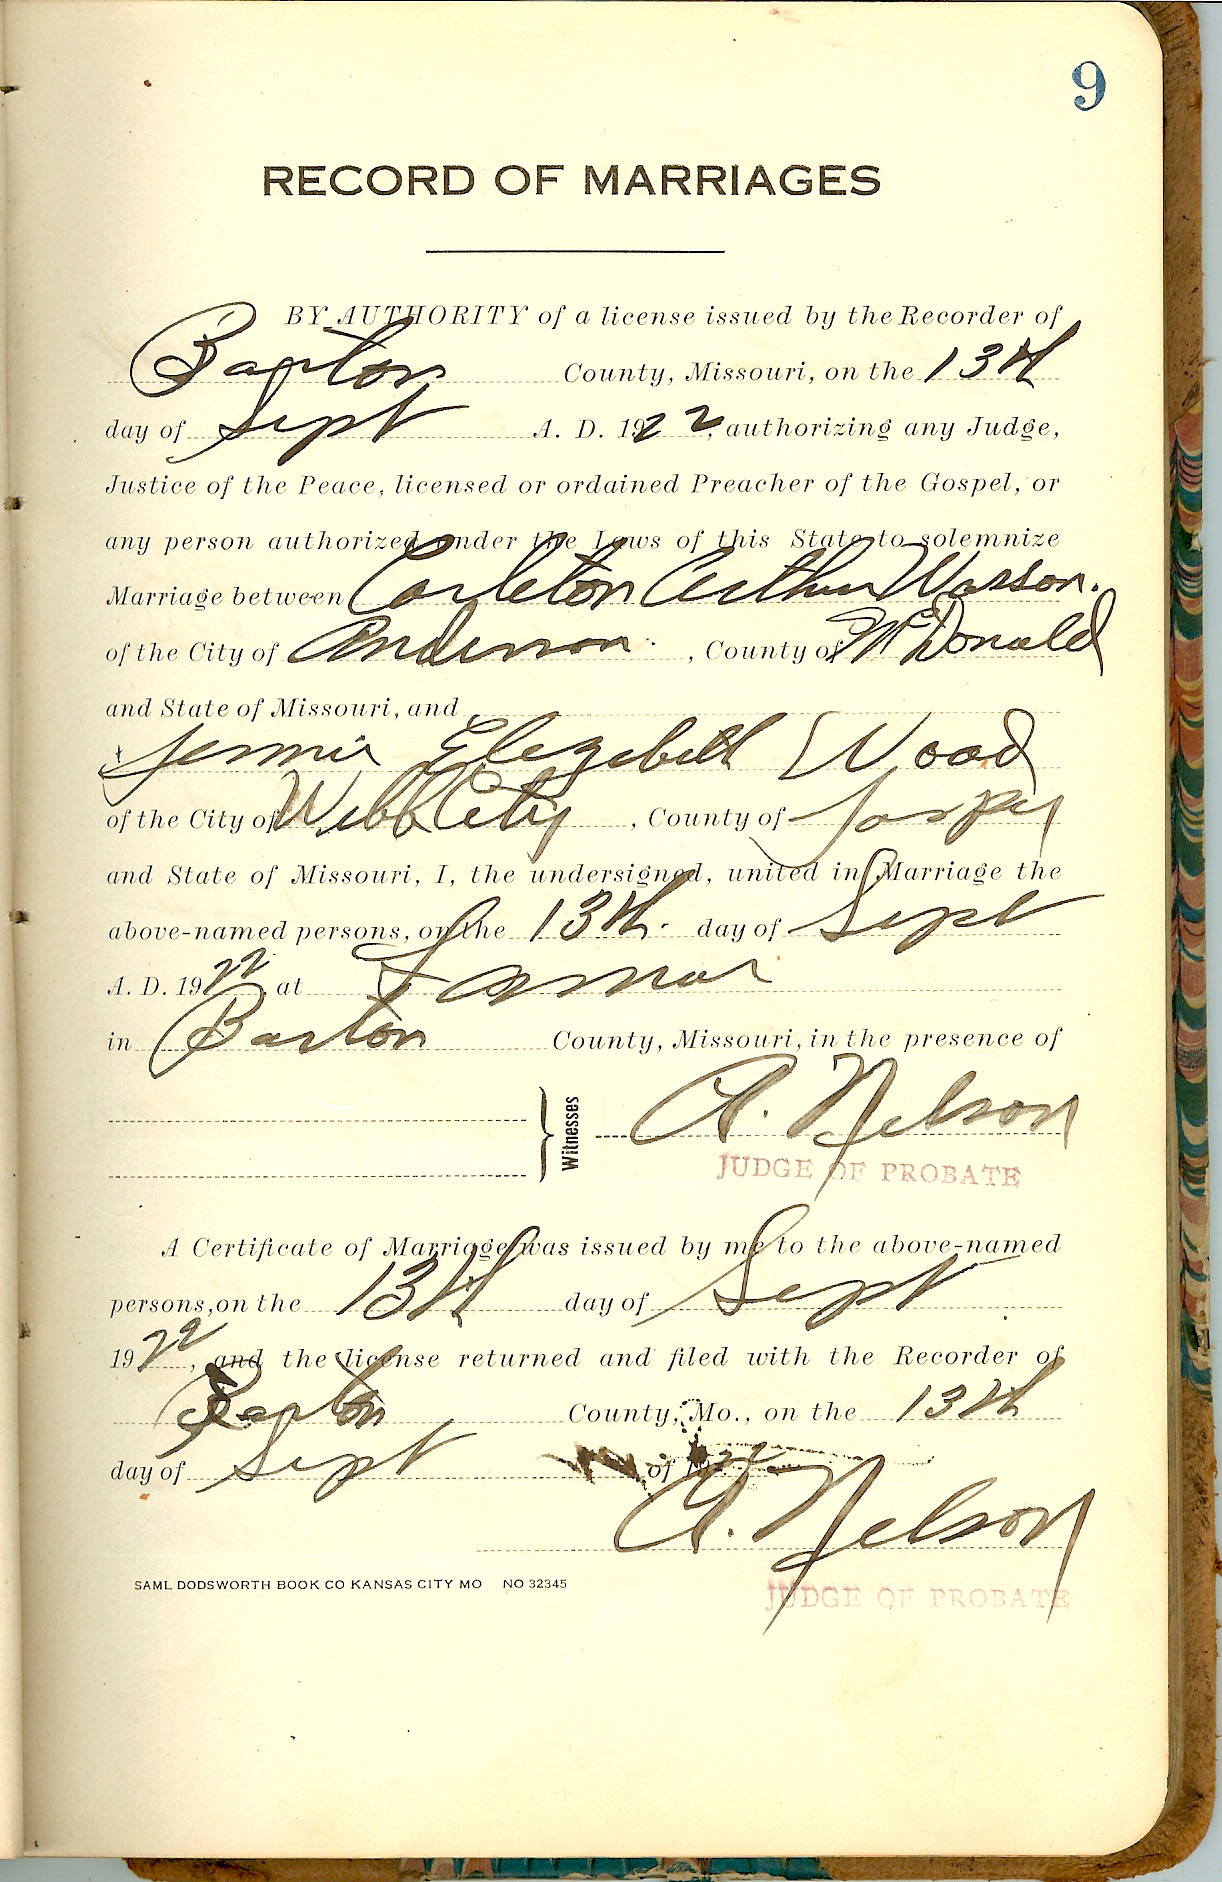 9
RECORD OF MARRIAGES
BY AUTHORITY of a license issued by the Recorder of
Barton County, Missouri, on the 13th
day of Sept A. D. 1922, authorizing any Judge,
Justice of the Peace, licensed or ordained Preacher of the Gospel, or
any person authorized under the Laws of this State to solemnize
Marriage between Carleton Arthur Wasson.
of the City of Anderson. , County of McDonald
and State of Missouri, and
Jennie Elezebeth Wood
of the City of Webb City , County of Jasper
and State of Missouri, I, the undersigned, united in Marriage the
above-named persons, on the 13th. day of Sept
A. D. 1922 at Lamar
in Barton County, Missouri, in the presence of
Witnesses A. Nelson
JUDGE OF PROBATE
A Certificate of Marriage was issued by me to the above-named
persons, on the 13th day of Sept
1922, and the license returned and filed with the Recorder of
Barton County, Mo., on the 13th
day of Sept of 1922
A. Nelson
SAML DODSWORTH BOOK CO KANSAS CITY MO NO 32345
JUDGE OF PROBATE